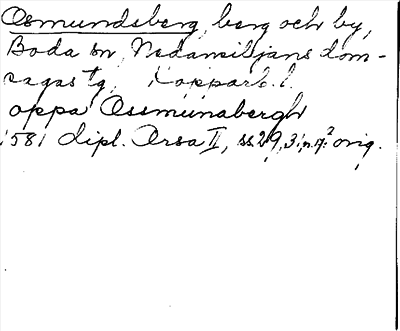 Osmundsberg, berg och by,
Boda sn, Nedansiljans dom-
sagas tg, Kopparb. l.
oppa Ossmunabergh
1581 dipl. Orsa II, ss 29, 31, orig.